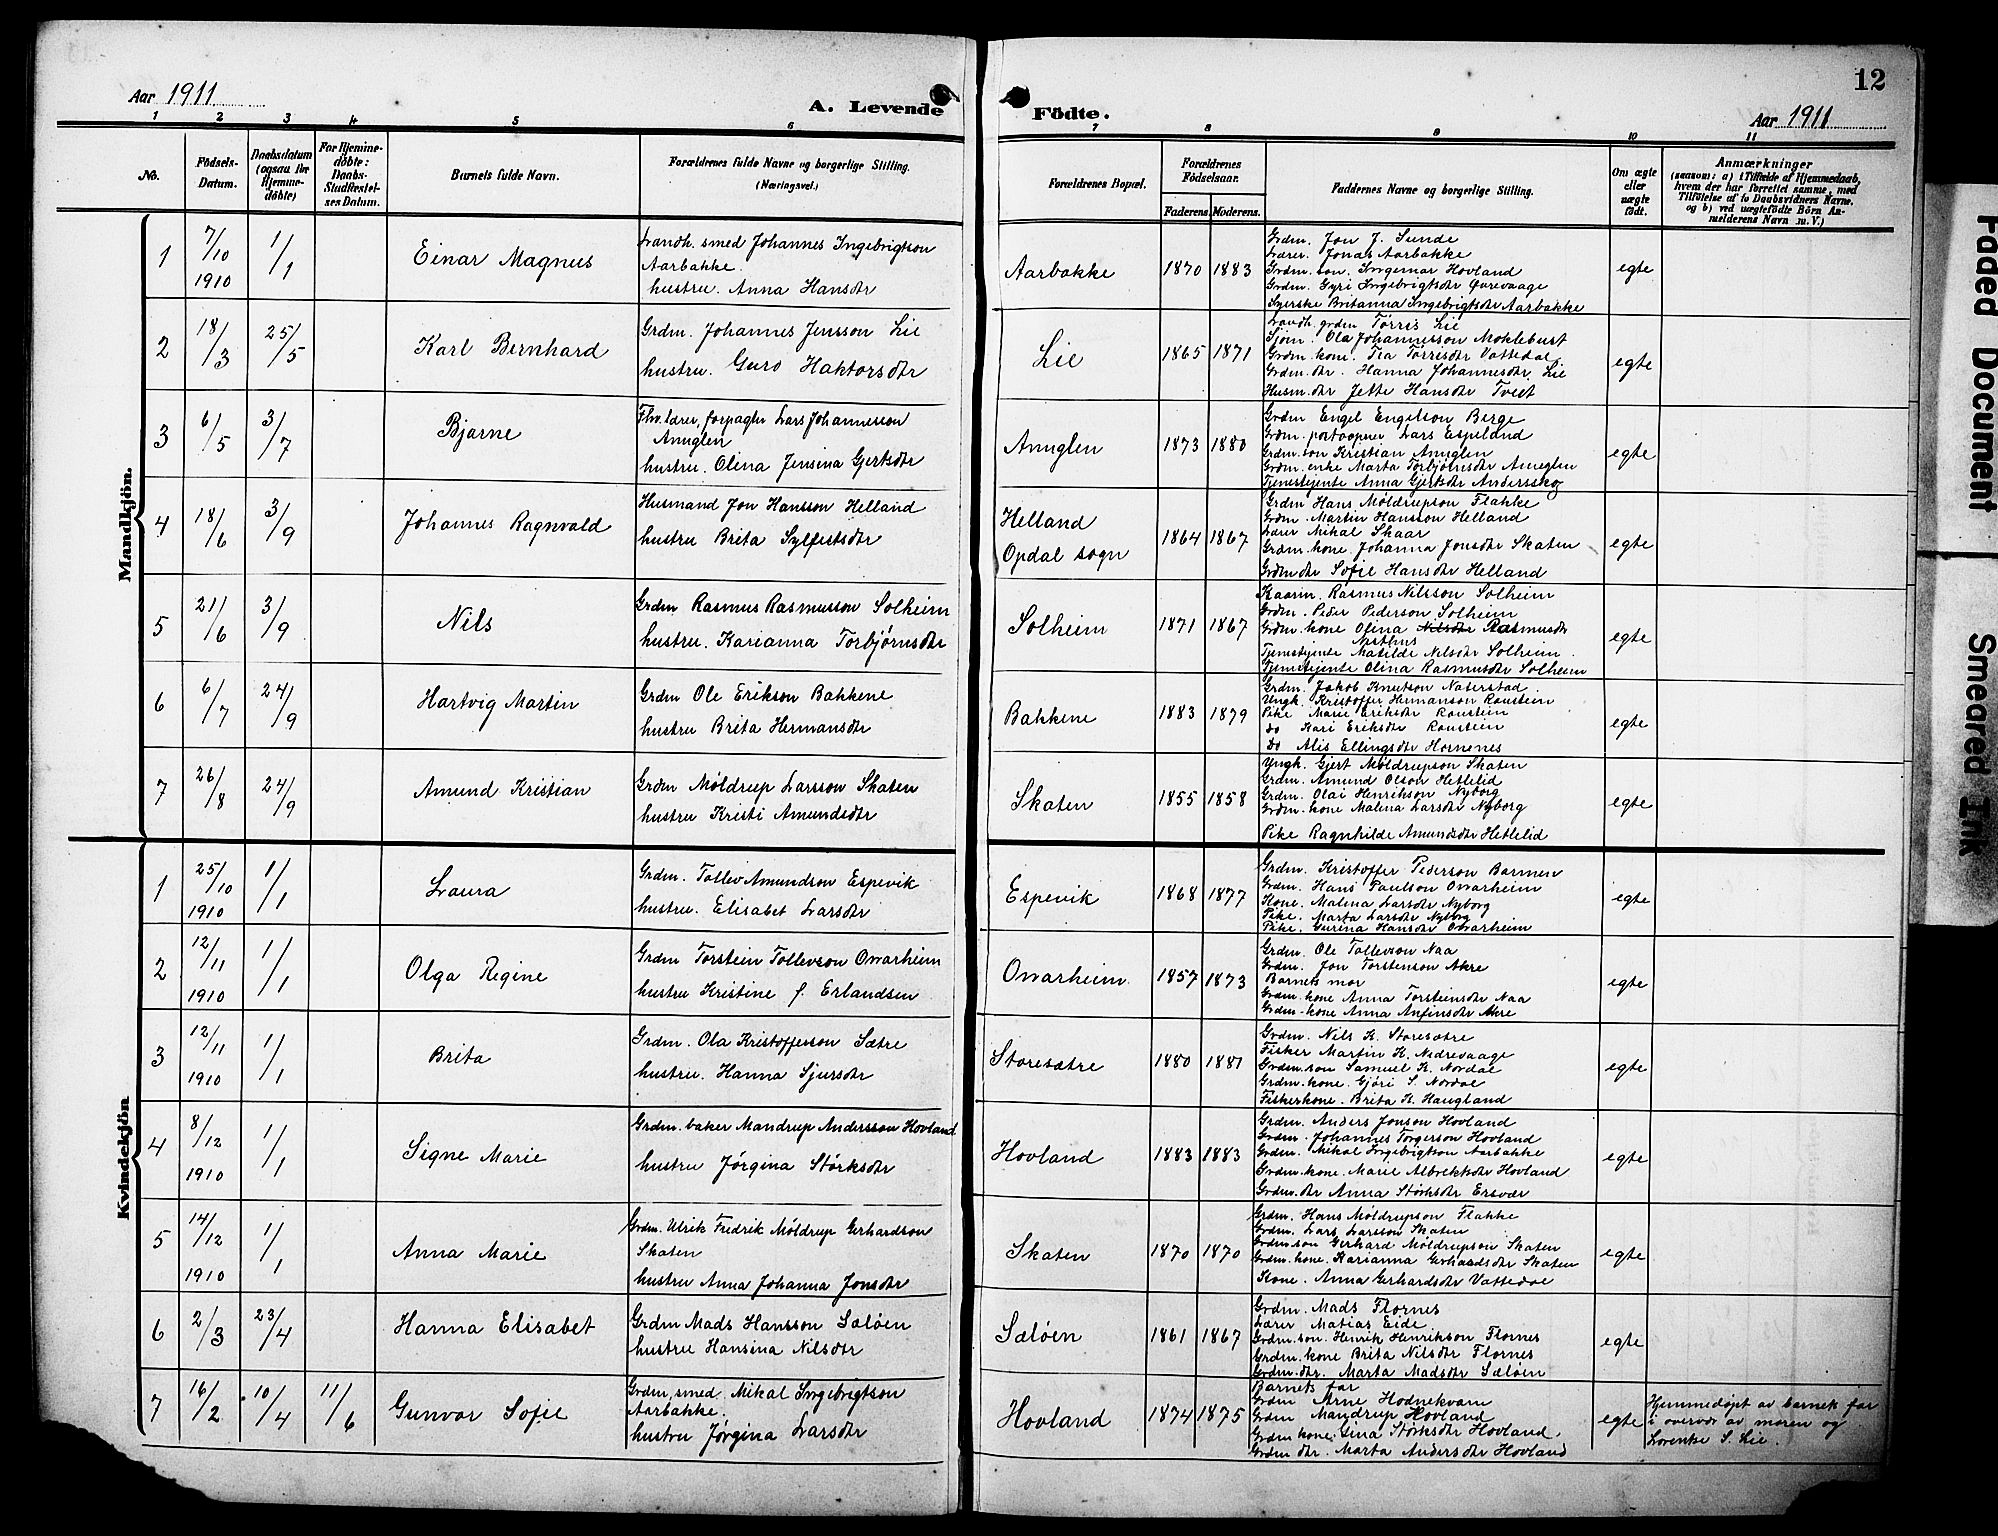 12
Aar 1911
A. Levende
Födte.
Aar 1911
1 2 3 4 5 6 7 8 9 10 11
No.
Födsels-
Datum.
Daabsdatum
(ogsaa for
Hjemme-
døbte)
For Hjemme-
døbte:
Daabs-
Stadfæstel-
ses Datum.
Barnets fulde Navn.
Forældrenes fulde Navne og borgerlige Stilling.
(Næringsvei.)
Forældrenes Bopæl.
Forældrenes
Födselsaar.
Faderens. Moderens.
Faddernes Navne og borgerlige Stilling.
Om ægte
eller
uægte
født.
Anmærkninger
(saasom: a) i Tilfælde af Hjemmedaab,
hvem der har forrettet samme, med
Tilföielse af to Daabsvidners Navne.
og b) ved uægtefödte Börn An-
melderens Navn m. V.)
Mandkjön.
1
7/10
1910
1/1
Einar Magnus
Landh. smed Johannes Ingebrigtson
Aarbakke.
hustru. Anna Hansdtr
Aarbakke
1870 1883
Grdm. Jon J. Sunde
Lærer. Jonas Aarbakke
Grdm. son. Ingemar Hovland
Grdm. Gyri Ingebrigtsdtr Øvrevaage
Syerske Britanna Ingebrigtsdtr Aarbakke
egte
2
18/3
25/5
Karl Bernhard
Grdm. Johannes Jensson Lie
hustru. Guro Haktorsdtr
Lie
1865 1871
Landh. grdm Tørris Lie
Sjøm. Ola Johannesson Moklebust
Grdm. kone. Tia Tørresdtr Vattedal
Grdm. dtr. Hanna Johannesdtr Lie
Husm. dtr Jette Hansdtr Tveit
egte
3
6/5
3/7
Bjarne
Fhv. lærer, forpagter Lars Johannesson
Annglen
hustru. Olina Jensina Gjertsdtr
Annglen
1873 1880
Grdm Engel Engelson Berge
Grdm. postaapner Lars Espeland
Grdm. son Kristian Annglen
Grdm. enke Marta Torbjørnsdtr Anneglen
Tjenestjente Anna Gjertsdtr Andersskog
egte
4
18/6
3/9
Johannes Ragnvald
Husmand Jon Hansson Helland
hustru Brita Sylfestsdtr
Helland
Opdal sogn
1864 1867
Grdm Hans Møldrupson Flakke
Grdm. Martin Hansson Helland
Lærer Mikal Skaar
Grdm. kone. Johanna Jonsdtr Skaten
Grdm dtr Sofie Hansdtr Helland
egte
5
21/6
3/9
Nils
Grdm Rasmus Rasmusson Solheim
hustru. Karianna Torbjørnsdtr
Solheim
1871 1867
Kaarm. Rasmus Nilsson Solheim
Grdm. Peder Pederson Solheim
Grdm. kone Olina Nilsdtr Rasmusdtr
Nesthus
Tjenestjente Matilde Nilsdtr Solheim.
Tjenestejente Olina Rasmusdtr Solheim
egte
6
6/7
24/9
Hartvig Martin
Grdm Ole Erikson Bakkene
hustru Brita Hermansdtr
Bakkene
1883 1879
Grdm. Jakob Knutson Naterstad.
Ungk. Kristoffer Hermanson Raustein
Pike Marie Eriksdtr Raustein
do Kari Eriksdtr Raustein
Do Alis Ellingsdtr Hornenes
egte
7
26/8
24/9
Amund Kristian
Grdm Møldrup Larsson Skaten
hustru Kristi Amundsdtr
Skaten
1855 1858
Yngk. Gjert Møldrupson Skaten
Grdm. Amund Olson Hetlelid
Grdm. Olai Henrikson Nyborg
Grdm. kone Malena Larsdtr Nyborg
Pike Ragnhilde Amundsdtr Hetlelid
egte
Kvindekjön
1
25/10
1910
1/1
Laura
Grdm. Tollev Amundson Espevik
hustru. Elisabet Larsdtr
Espevik
1868 1877
Grdm. Kristoffer Pederson Barmen
Grdm. Hans Paulson Owarheim
Kone. Malena Larsdtr Nyborg
Pike. Marta Larsdtr Nyborg
Pike. Gurina Hansdtr Owarheim
egte
2
12/11
1910
1/1
Olga Regine
Grdm Torstein Tollevson Owarheim
hustru Kristine f. Erlandsen
Owarheim
1857 1873
Grdm. Ole Tollevson Naa
Grdm. Jon Torstenson Akre
Barnets mor
Grdm. kone Anna Torsteinsdtr Naa
Grdm. kone Anna Anfinsdtr Akre
egte
3
12/11
1910
1/1
Brita
Grdm. Ola Kristofferson Sætre
hustru. Hanna Sjursdtr
Storesætre
1880 1881
Grdm. Nils K. Storesætre
Fisker Martin K. Nedrevaage
Grdm. son Samuel K. Nordal
Grdm. kone. Gjøri S. Nordal
Fiskerkone. Brita K. Haugland
egte
4
8/12
1910
1/1
Signe Marie
Grdm. baker Mandrup Andersson Hovland
hustru Jørgina Størksdtr
Hovland
1883 1883
Grdm. Anders Jonson Hovland
Grdm. Johannes Torgerson Hovland
Grdm. Mikal Ingebrigtson Aarbakke
Grdm. kone. Marie Albrektsdtr Hovland
Grdm. dtr Anna Størksdtr Ersvær
egte
5
14/12
1910
1/1
Anna Marie
Grdm. Ulrik Fredrik Møldrup Gerhardson
Skaten
hustru Anna Johanna Jonsdtr
Skaten
1870 1870
Grdm. Hans Møldrupson Flakke
Grdm. Lars Larsson Skaten
Grdm. son Gerhard Møldrupson Skaten
Grdm. kone. Karianna Gerhardsdtr Skaten
Kone. Anna Gerhardsdtr Vattedal
egte
6
2/3
23/4
Hanna Elisabet
Grdm Mads Hansson Sæløen
hustru Hansina Nilsdtr
Sæløen
1861 1867
Grdm. Mads Flornes
Lærer Matias Eide
Grdm. son. Henrik Henrikson Flornes
Grdm. kone Brita Nilsdtr Flornes
Grdm. dtr. Marta Madsdtr Sæløen
egte
7
16/2
10/4
11/6
Gunvor Sofie
Grdm, smed. Mikal Ingebrigtson
Aarbakke.
hustru Jørgina Larsdtr
Hovland
1874 1875
Barnets far
Grdm Arne Hodnekvam
Grdm Mandrup Hovland
Grdm kone. Gina Størksdtr Hovland.
Grdm dtr. Marta Andersdtr Hovland
egte
Hjemmedøpt av barnets far
i overvær av moren og
Lorentse S. Lie.
Faded Document
Smeared Ink